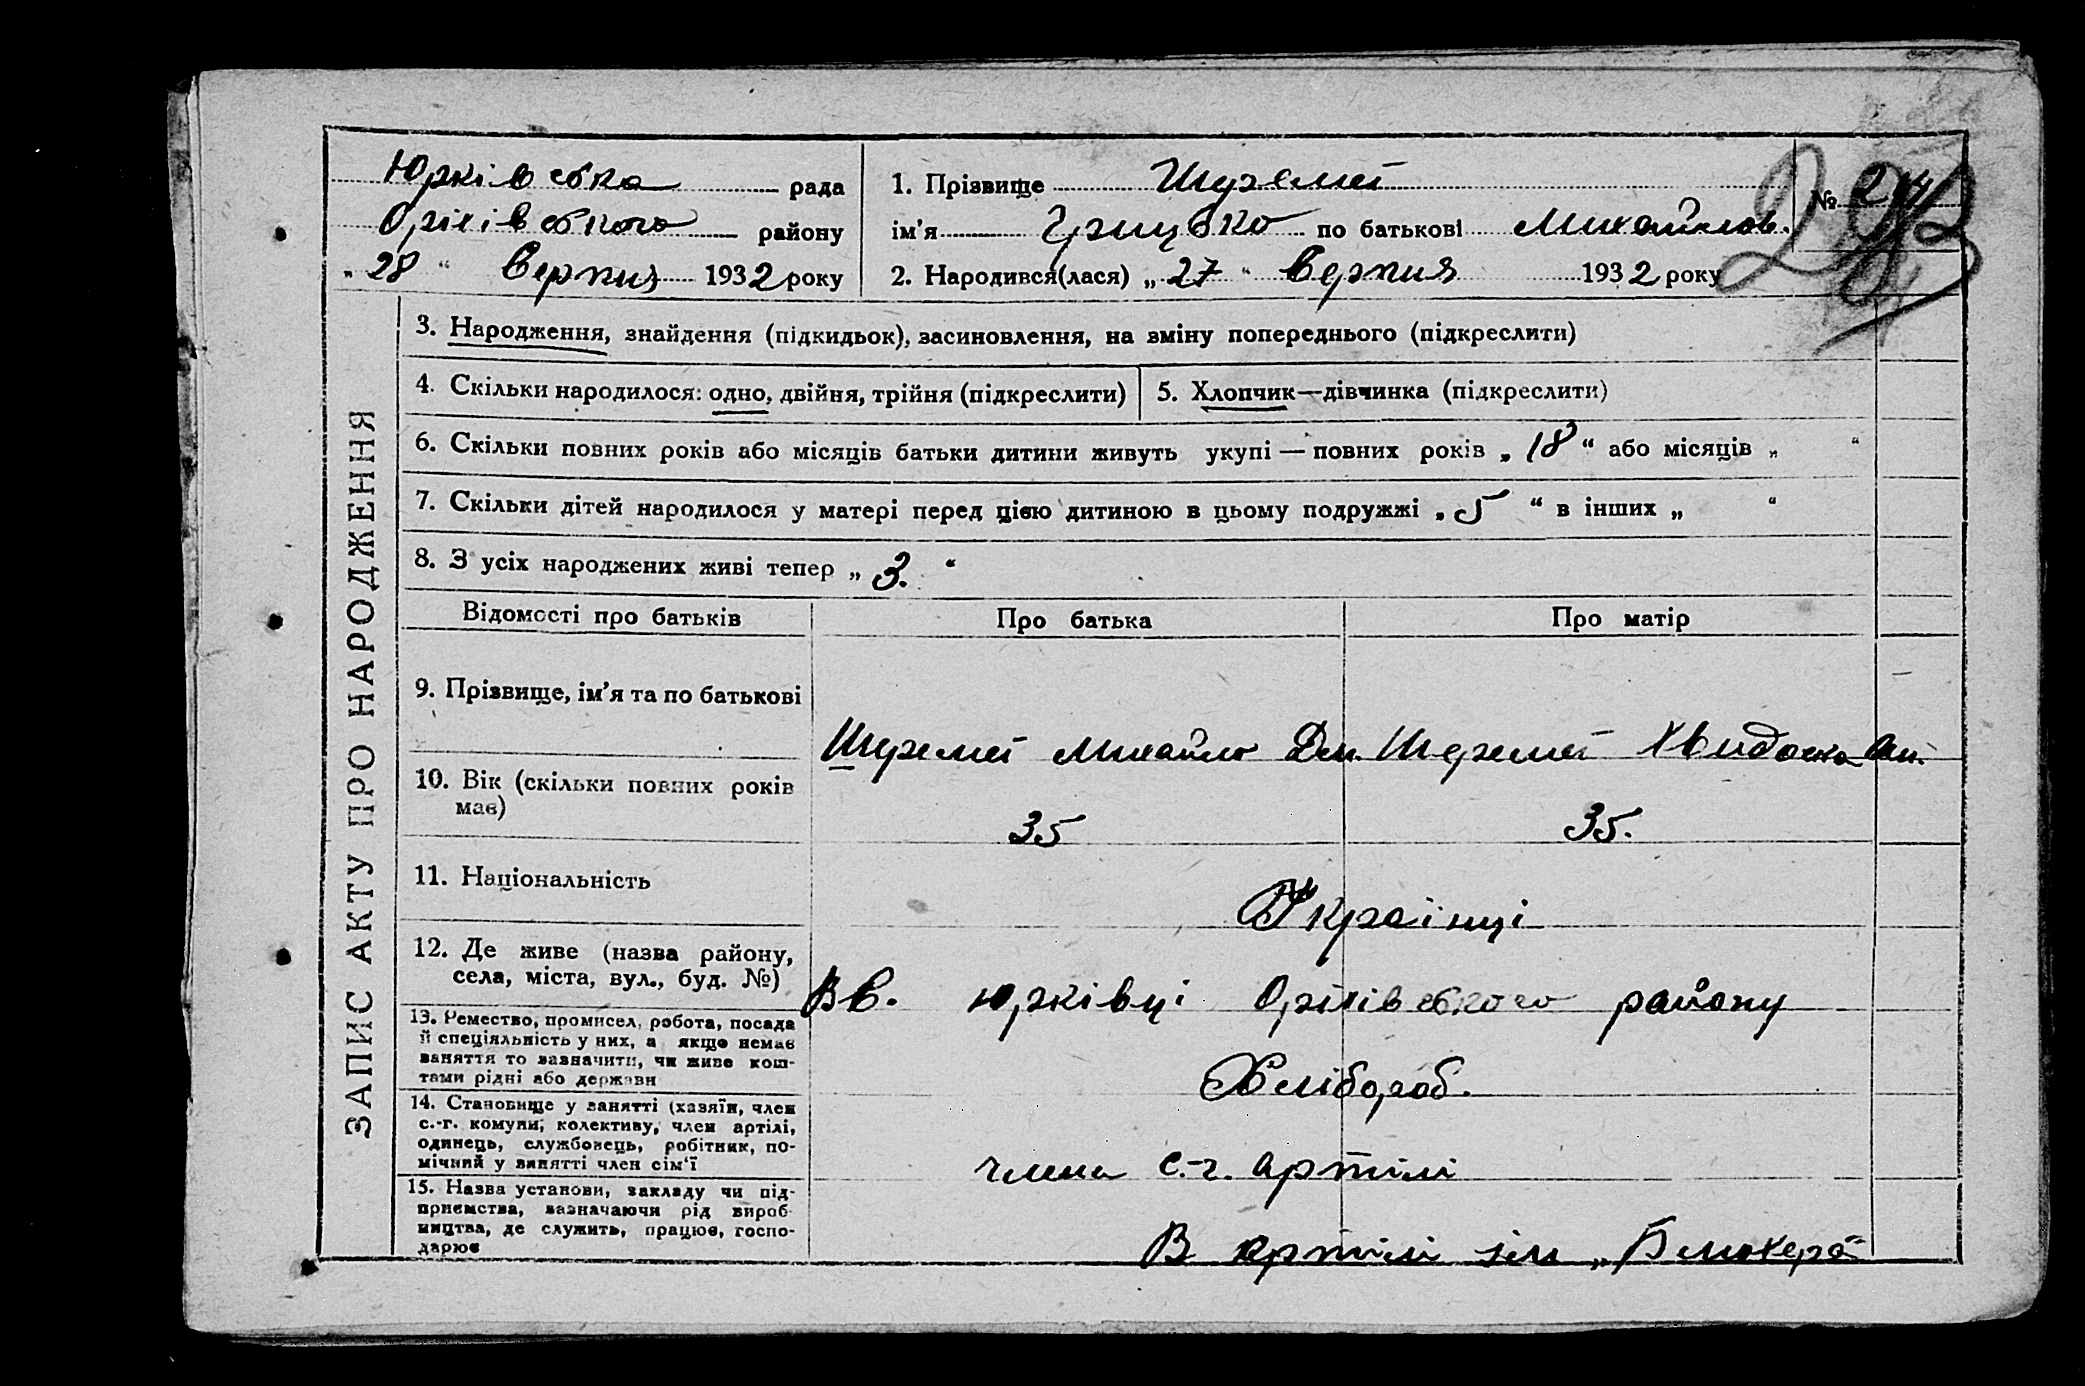 Юрківська рада
Оріхівського району
„ 28 “ Серпня 1932 року
1. Прізвище Шеремет
ім'я Грицько по батькові Михайлов.
2. Народився(лася) „ 27 “ Серпня 1932 року
№ 24
ЗАПИС АКТУ ПРО НАРОДЖЕННЯ
3. Народження, знайдення (підкидьок), засиновлення, на зміну попереднього (підкреслити)
4. Скільки народилося: одно, двійня, трійня (підкреслити)
5. Хлопчик—дівчинка (підкреслити)
6. Скільки повних років або місяців батьки дитини живуть укупі — повних років „ 18 “ або місяців „ “
7. Скільки дітей народилося у матері перед цією дитиною в цьому подружжі „ 5 “ в інших „ “
8. З усіх народжених живі тепер „ 3. “
Відомості про батьків
Про батька
Про матір
9. Прізвище, ім'я та по батькові
Михайло
10. Вік (скільки повних років
має)
35
35.
11. Національність
Українці
12. Де живе (назва району,
села, міста, вул., буд. №)
Юрківці Оріхівського району
13. Ремество, промисел, робота, посада
й спеціяльність у них, а якщо немає
заняття то зазначити, чи живе кош-
тами рідні або держави
Хлібороб.
14. Становище у занятті (хазяїн, член
с.-г. комуни, колективу, член артілі,
одинець, службовець, робітник, по-
мічний у занятті член сім'ї
члени с.-г. артілі
15. Назва установи, закладу чи під-
приємства, зазначаючи рід вироб-
ництва, де служить, працює, госпо-
дарює
В артілі ім „Блюхера“